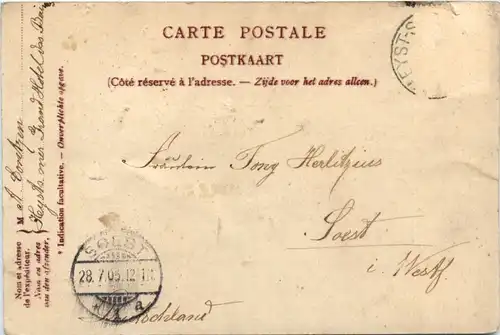 CARTE POSTALE
POSTKAART
(Côté réservé à l'adresse. — Zijde voor het adres alleen.)
HEYST-S
Fräulein Tony Herlitzius
Soest
i. Westf.
SOEST
28.7.05.12-1N
* 1 a
Deutschland
Nom et adresse de l'expéditeur.
Naam en adres van den afzender.
M
Heyst s/mer Grand Hôtel des Bains
* Indication facultative. — Onverplichte opgave.